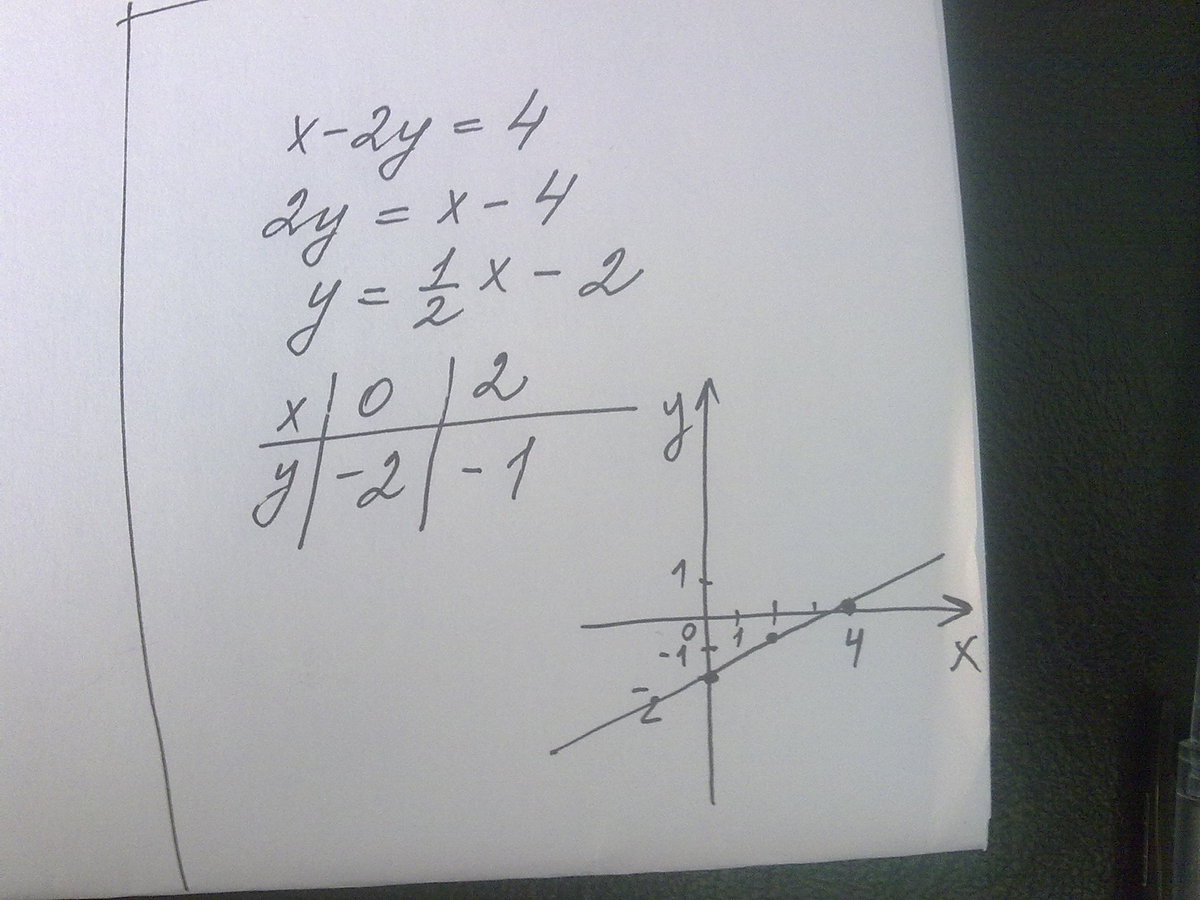 x-2y = 4
2y = x - 4
y = 1/2 x - 2
x | 0 | 2
y | -2 | -1
y
1
0 1
-1 4 x
-2